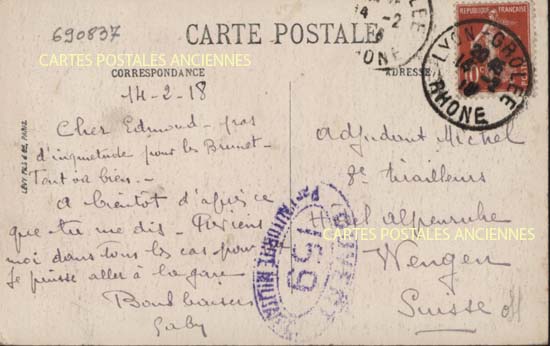 690837
CARTE POSTALE
CARTES POSTALES ANCIENNES
CORRESPONDANCE
ADRESSE
REPUBLIQUE FRANÇAISE
10
LYON-GROLÉE
RHONE
14-2
LEVY FILS & Cie, PARIS
14-2-18
Cher Edmond - pas
d'inquietude pour les Brunet -
Tout va bien -
A bientôt d'après ce
que tu me dis - Préviens
moi dans tous les cas pour
Je puisse aller à la gare
Bons baisers
Gaby
Adjudant Michel
8e tirailleurs
Hotel alpenruhe
CARTES POSTALES ANCIENNES
Wengen
Suisse
OUVERT
Par L'AUTORITÉ MILITAIRE
159